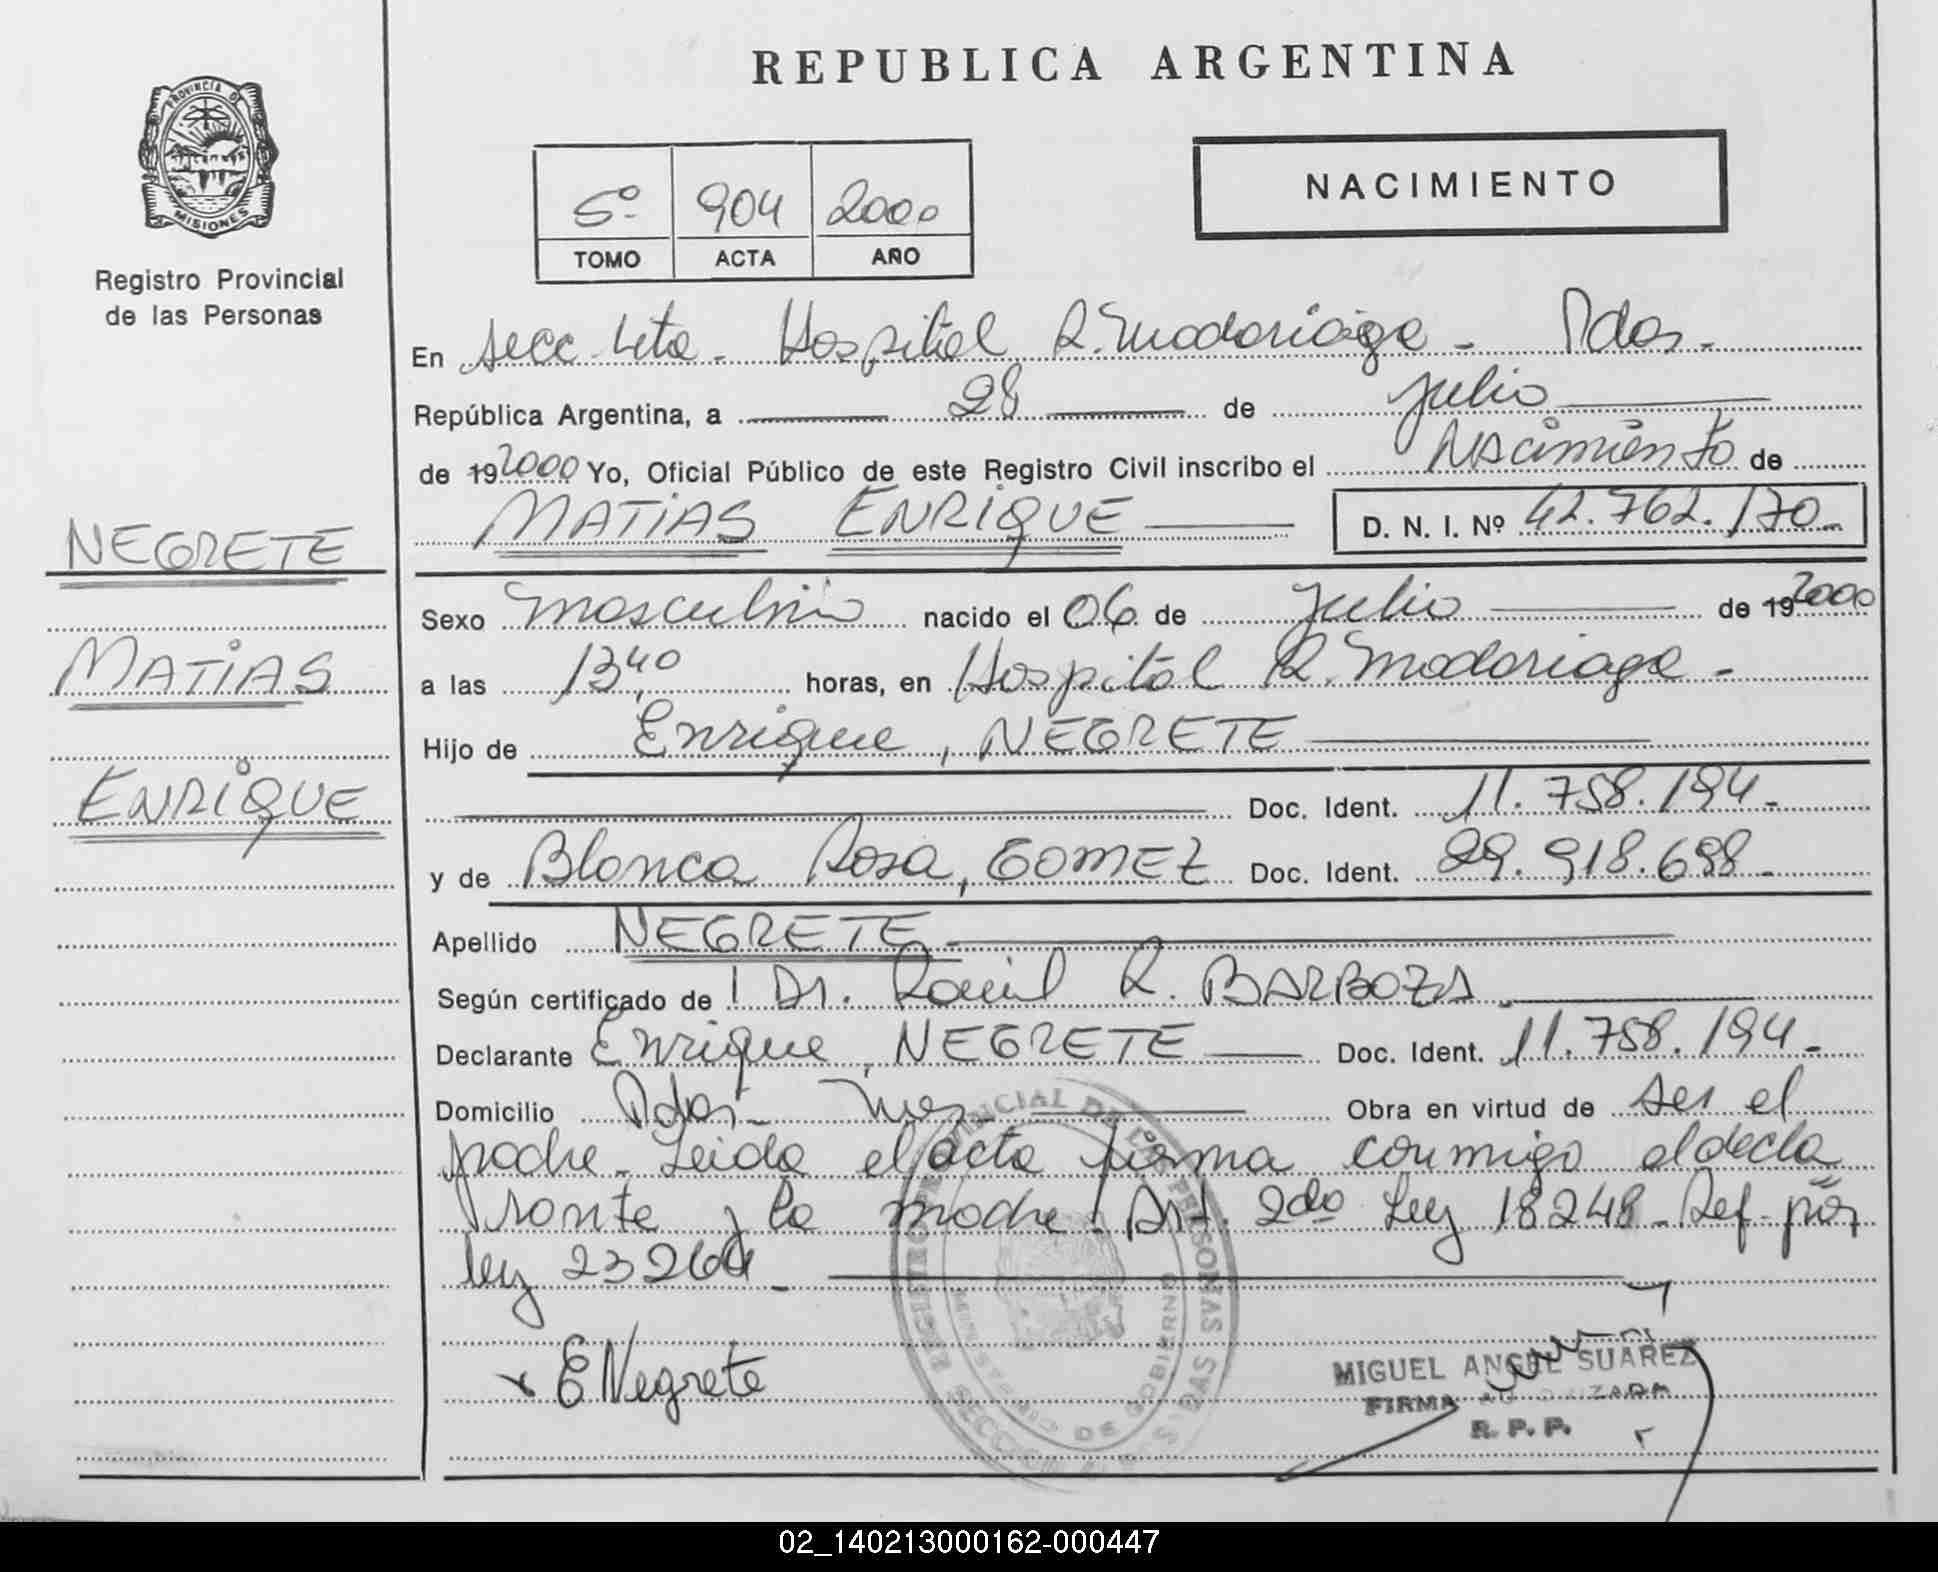 REPUBLICA ARGENTINA
PROVINCIA DE
MISIONES
Registro Provincial
de las Personas
5º 904 2000
TOMO ACTA AÑO
NACIMIENTO
En Secc 4ta. Hospital R. Madariaga - Pdas.
República Argentina, a 28 de Julio
de 19 2000 Yo, Oficial Público de este Registro Civil inscribo el Nacimiento de
MATIAS ENRIQUE D. N. I. Nº 42.762.170
NEGRETE
MATIAS
ENRIQUE
Sexo Masculino nacido el 06 de Julio de 19 2000
a las 13,40 horas, en Hospital R. Madariaga -
Hijo de Enrique, NEGRETE
Doc. Ident. 11.758.194.
y de Blanca Rosa, GOMEZ Doc. Ident. 29.918.698
Apellido NEGRETE
Según certificado de Dr. Raúl R. BARBOZA
Declarante Enrique, NEGRETE Doc. Ident. 11.758.194.
Domicilio Pdas. Mnes Obra en virtud de ser el
padre. Leida el acta firma conmigo el decla
rante y la madre. Art. 2do Ley 18248. Ref. por
ley 23264
E Negrete
MIGUEL ANGEL SUAREZ
FIRMA AUTORIZADA
R. P. P.
02_140213000162-000447